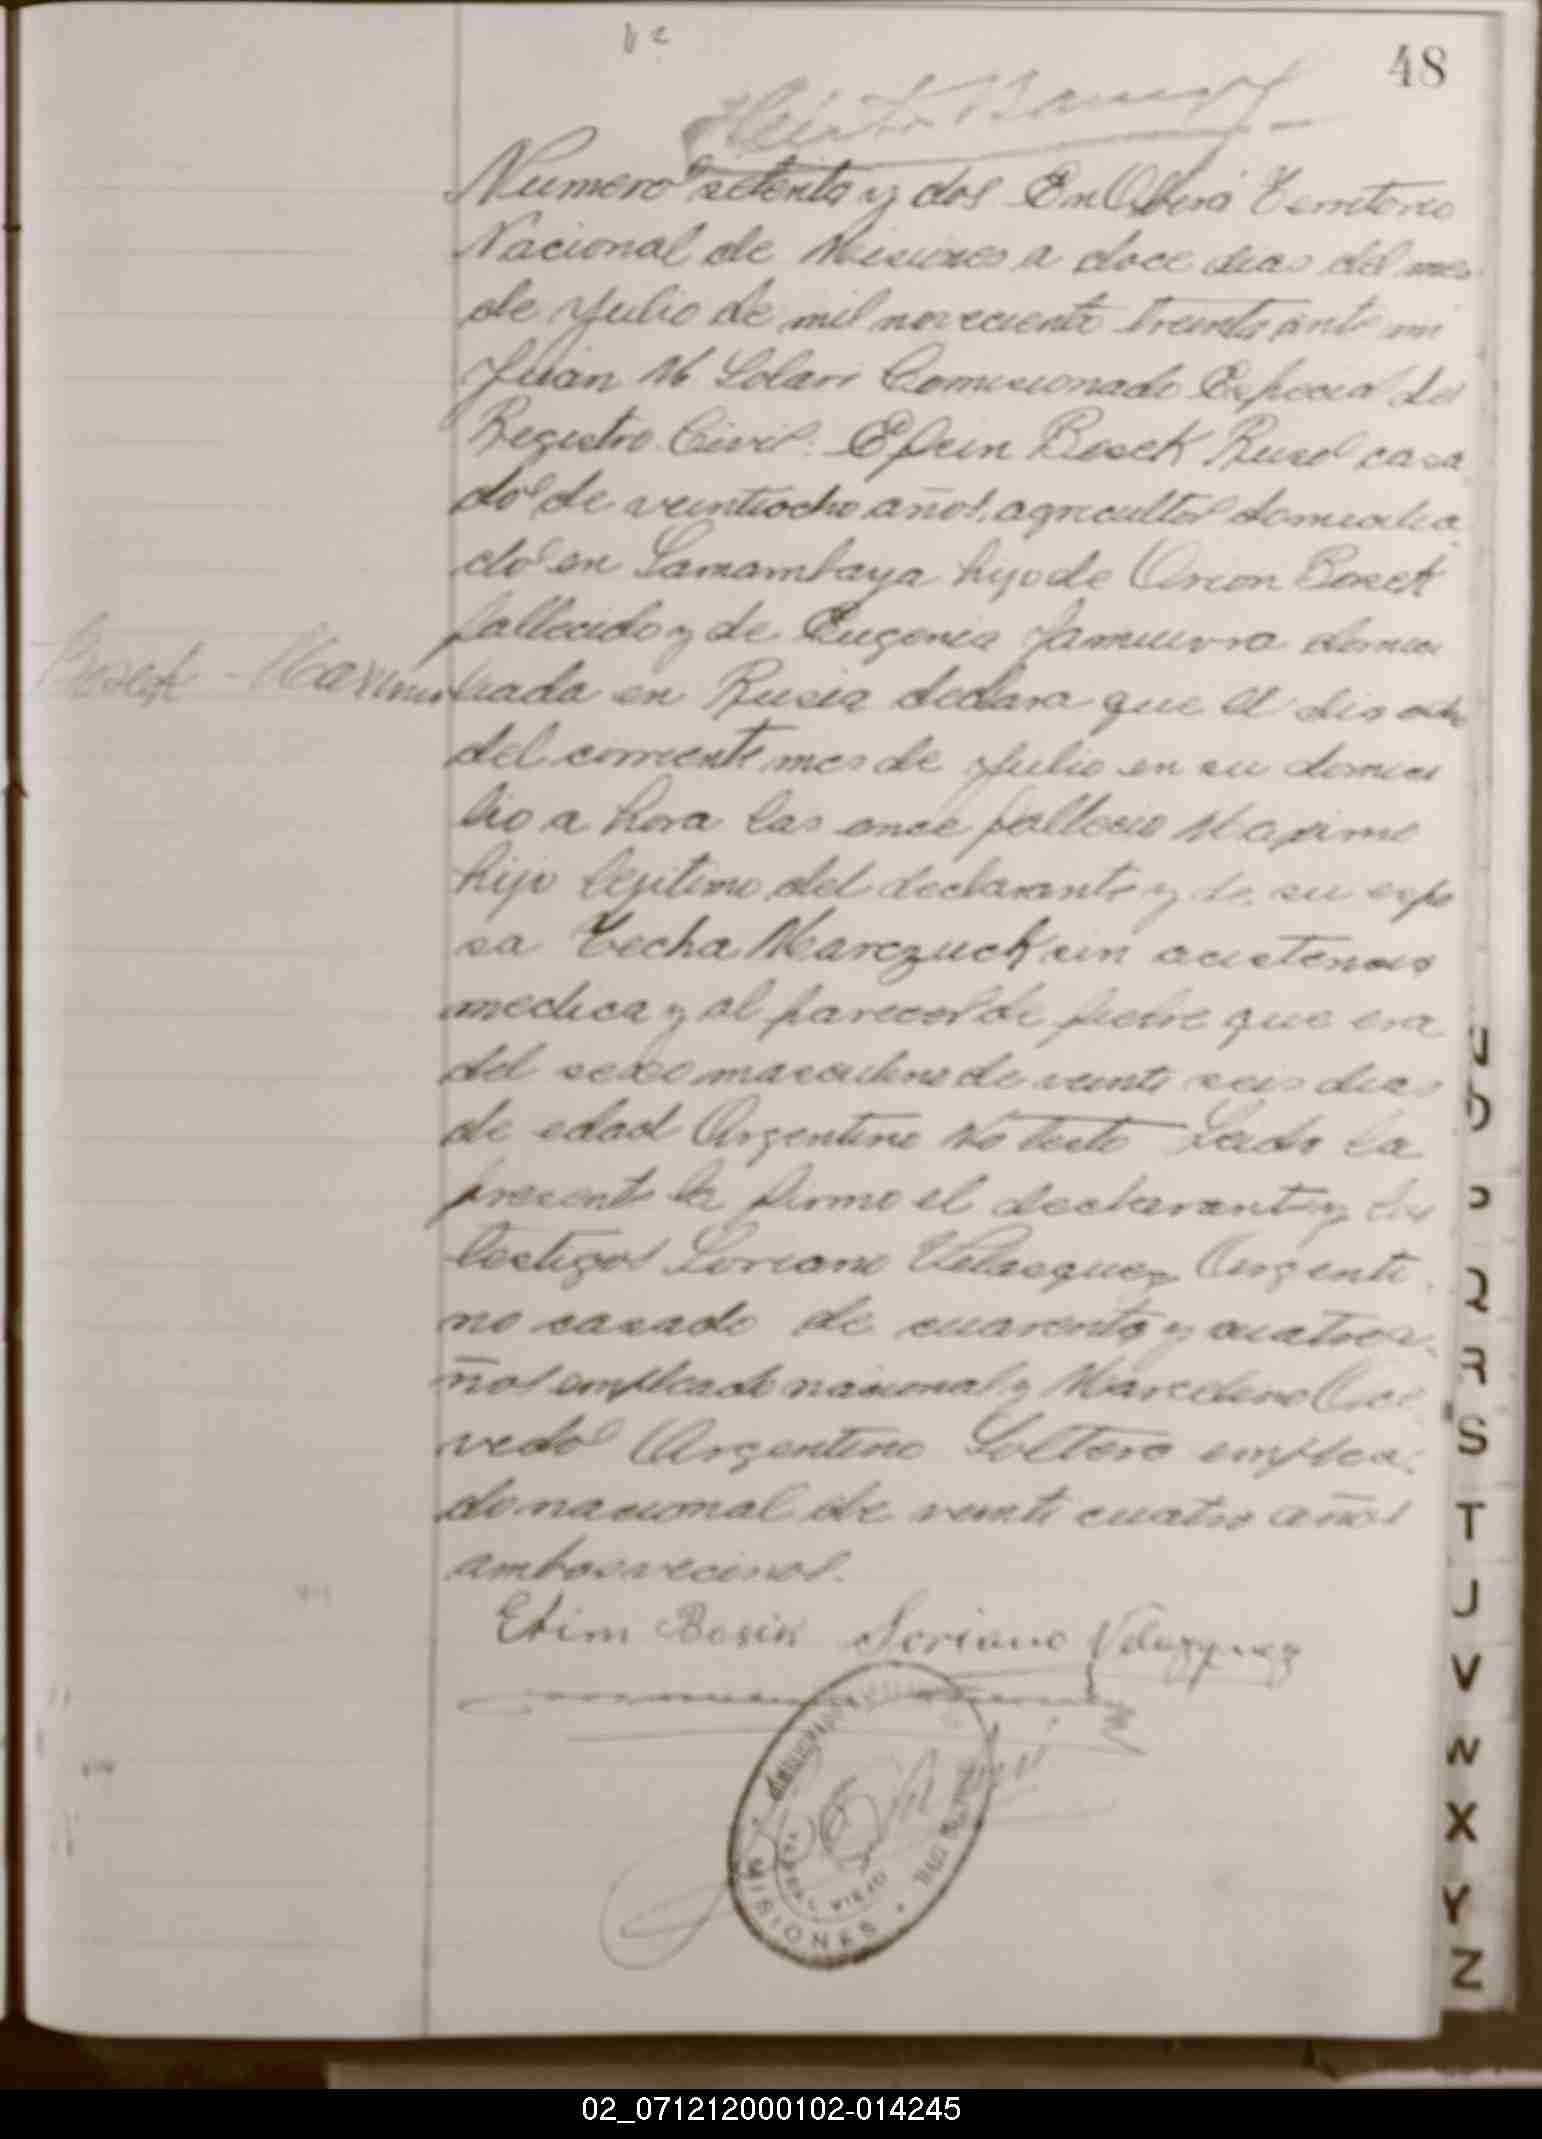 48
Numero setenta y dos En Oberá Territorio
Nacional de Misiones a doce dias del mes
de Julio de mil novecients treinta ante mi
Juan M Solari Comisionado Especial del
Registro Civil. Efrin Bosek Ruso casa
do de veintiocho años, agricultor domicilia
do en Samambaya hijo de Bosek
fallecido y de Eugenia domici
Bosek - Maximo
liada en Rusia declara que el dia ocho
del corriente mes de Julio en su domici
lio a hora las once fallecio Maximo
hijo legitimo del declarante y de su espo
sa Techa Marczuck sin acistencia
medica y al parecer de fiebre que era
del sexo masculino de veinte seis dias
de edad Argentino No testo Leida la
presente la firmo el declarante y los
testigos Soriano Velasquez Argenti
no casado de cuarenta y cuatro a
ños empleado nacional y Marcelino Ace
vedo Argentino Soltero emplea
do nacional de veinte cuatro años
ambos vecinos.
Efim Bosik Soriano Velazquez
MISIONES
YERBAL VIEJO
O
P
Q
R
S
T
U
V
W
X
Y
Z
02_071212000102-014245